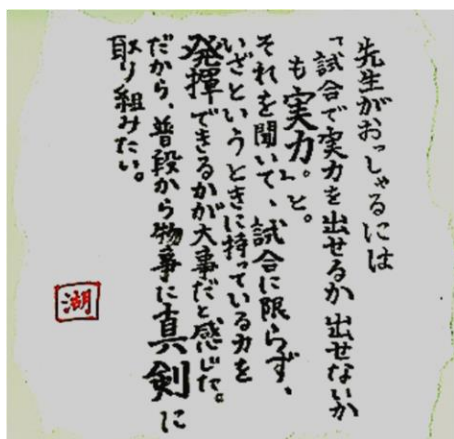 先生がおっしゃるには
「試合で実力を出せるか出せないか
も実力。」と。
それを聞いて、試合に限らず、
いざというときに持っている力を
発揮できるかが大事だと感じた。
だから、普段から物事に真剣に
取り組みたい。
湖